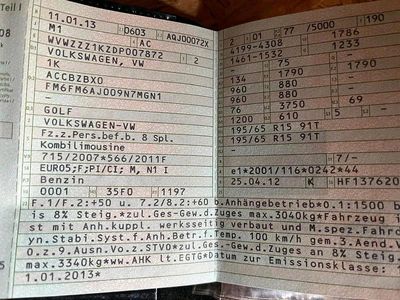 Teil I
11.01.13 0603 AQJ00072X
M1 AC
WVWZZZ1KZDP007872
VOLKSWAGEN, VW 1 2
1K
ACCBZBX0
FM6FM6AJ009N7MGN1
–
GOLF
VOLKSWAGEN-VW
Fz.z.Pers.bef.b. 8 Spl.
Kombilimousine
715/2007*566/2011F
EURO5;F;PI/CI; M, N1 I
Benzin
0001 35F0 1197
2 01 77 /5000 190
4199-4308 1786
1461-1532 1233
– –
134 75 1790
960 880 –
960 880 –
76 3750 69
1200 610 5 –
195/65 R15 91T
195/65 R15 91T
–
7/–
e1*2001/116*0242*44
25.04.12 K HF137620
F.1/F.2:+50 u. 7.2/8.2:+60 b.Anhängebetrieb*0.1:1500 b
is 8% Steig.*zul.Ges-Gew.d.Zuges max.3340kg*Fahrzeug i
st mit Anh.kuppl. werksseitig verbaut und M.spez.Fahrd
yn.Stabi.Syst.f.Anh.Betr.f.Temp. 100 km/h gem.3.Aend.V
O.z.9.Ausn.Vo.z.STVO*zul.Ges.-Gew.d.Zuges an 8% Steig.
max.3340kg*ww.AHK lt.EGTG*Datum zur Emissionsklasse:
1.01.2013*